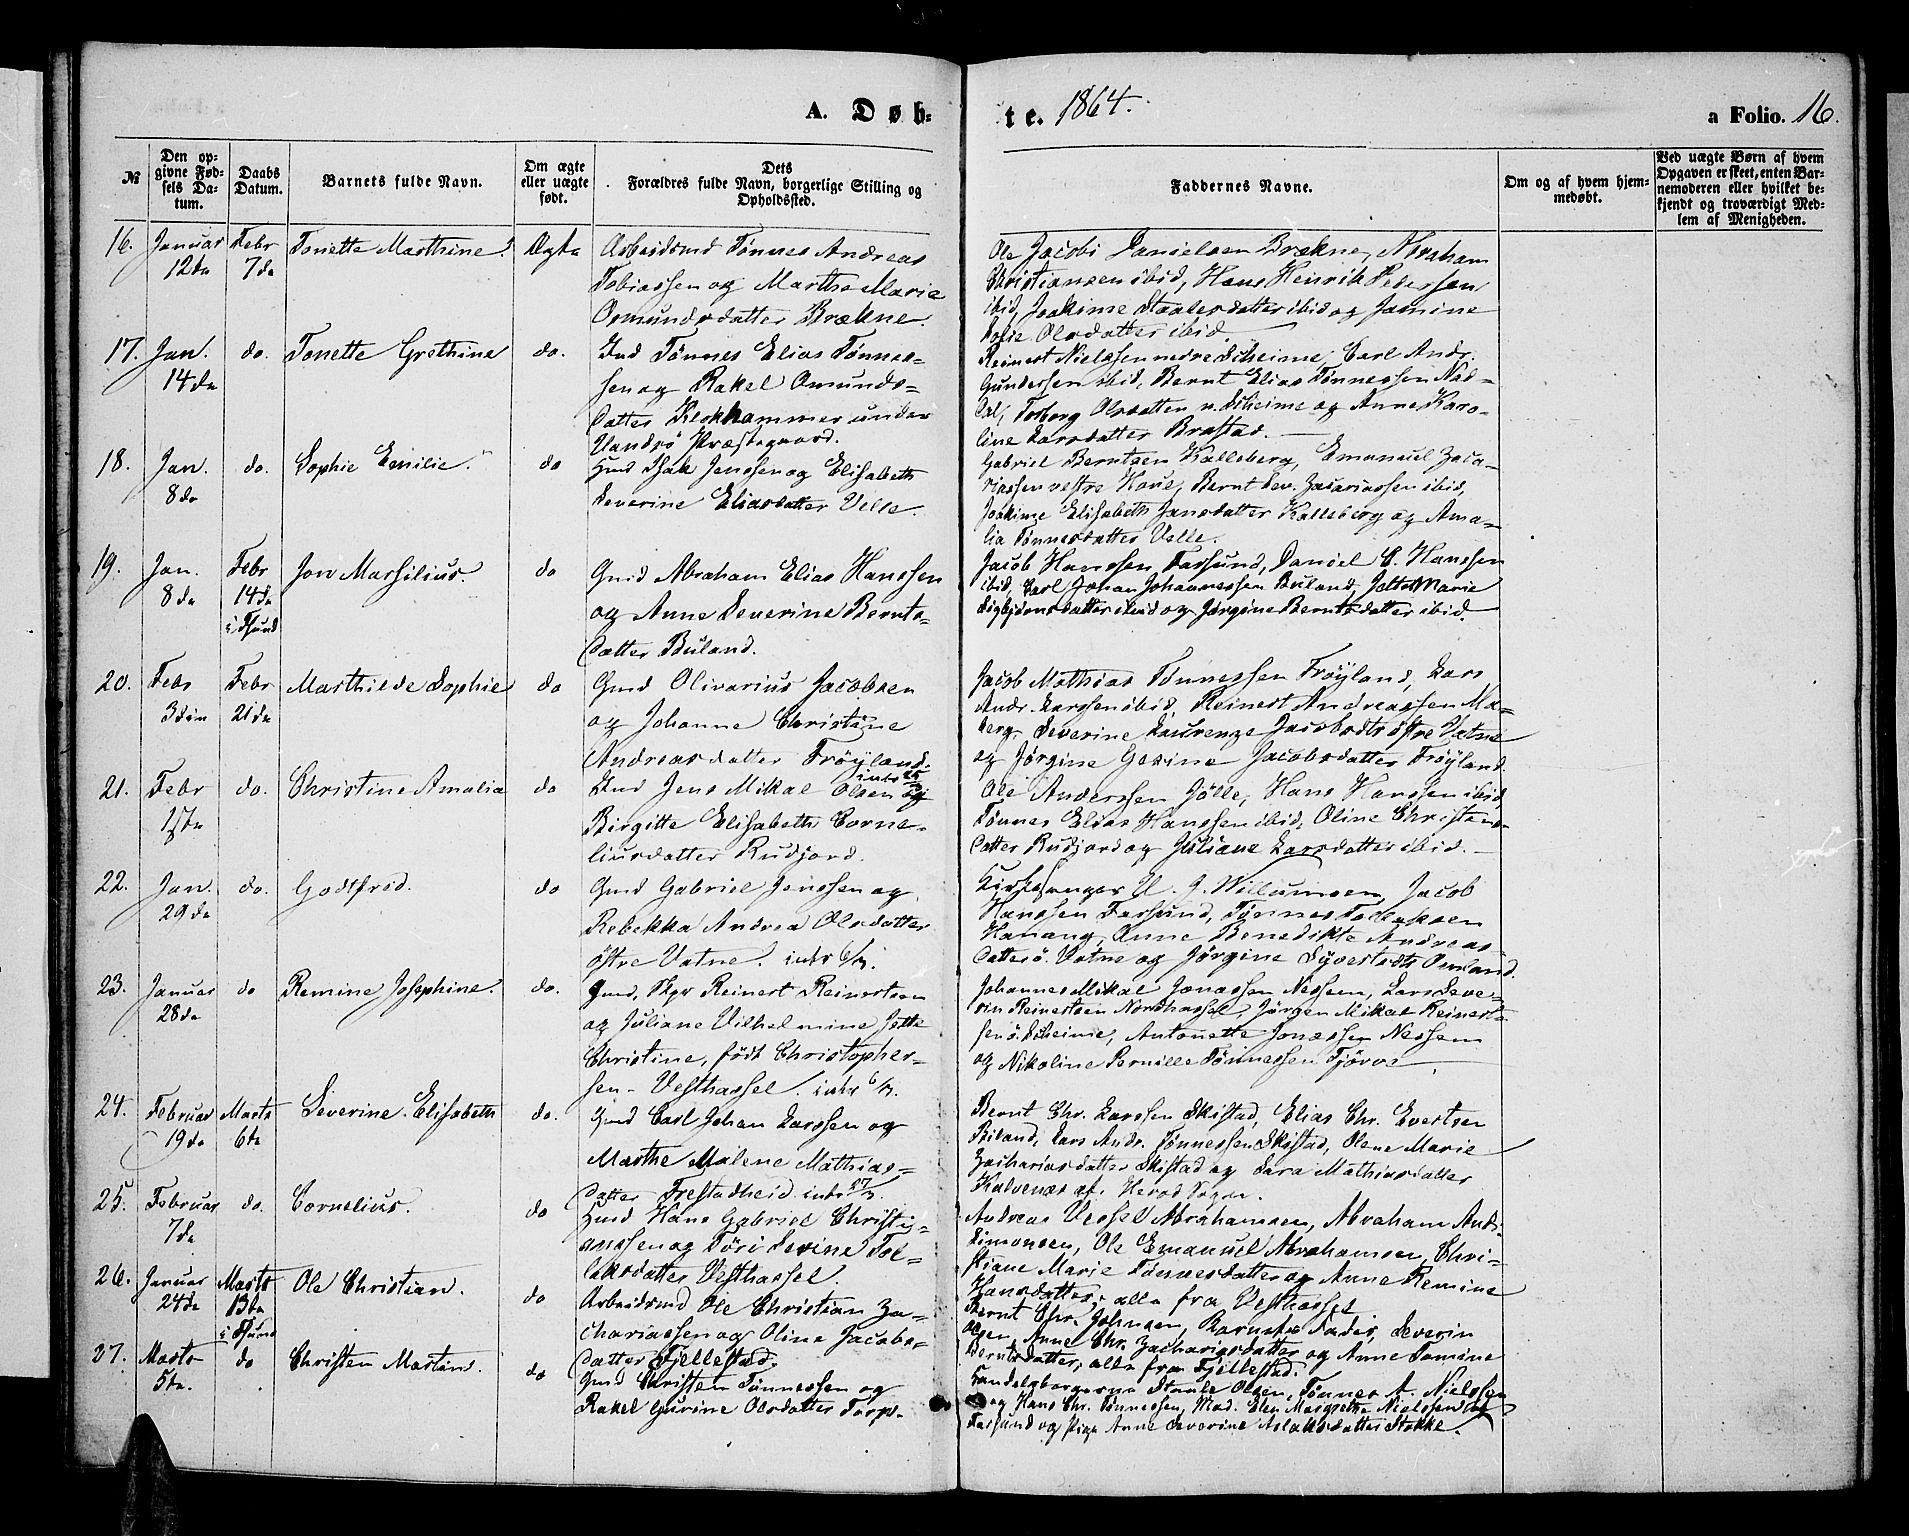 A. Døb-
te. 1864.
a Folio. 16.
№
Den op-
givne Fød-
sels Da-
tum.
Daabs
Datum.
Barnets fulde Navn.
Om ægte
eller uægte
født.
Dets
Forældres fulde Navn, borgerlige Stilling og
Opholdssted.
Faddernes Navne.
Om og af hvem hjem-
medøbt.
Ved uægte Børn af hvem
Opgaven er skeet, enten Bar-
nemoderen eller hvilket be-
kjendt og troværdigt Med-
lem af Menigheden.
16. Januar 12te Febr 7de Tonette Marthine. Ægte
Arbeidsmd Tønnes Andreas
Tobiassen og Marthe Marie
Osmundsdatter Brækne.
Ole Jacobi Danielsen Brækne, Abraham
Christiansen ibid, Hans Henrik Pedersen
ibid, Joakime Staalesdatter ibid og Jamine
Sofie Olsdatter ibid.
17. Jan. 14de do. Tonette Grethine do.
Tønnes Elias Tønnes-
sen og Rakel Omunds-
datter Klokhammer under
Vandsø Præstegaard.
Reinert Nielssen nedre Skeime, Carl Andr.
Gundersen ibid, Bernt Elias Tønnessen
Torborg Olsdatter n. Skeime og Anne Karo-
line Larsdatter Brastad.
18. Jan. 8de do. Sophie Emilie. do
Gmd Isak Jenssen og Elisabeth
Severine Eliasdatter Velle.
Gabriel Berntsen Kalleberg, Emanuel Zaca-
riassen vestre Haue, Bernt Sev. Zacariassen ibid,
Joakime Elisabeth Jansdatter Kalleberg og Ama-
lia Tønnesdatter Velle.
19. Jan. 8de Febr 14de i Fsund Jon Marsilius. do
Gmd Abraham Elias Hanssen
og Anne Severine Bernts-
datter Buland.
Jacob Hanssen Farsund, Daniel C. Hanssen
ibid, Carl Johan Johannessen Buland, Jette Marie
Sigbjørnsdatter ibid og Jørgine Berntsdatter ibid.
20. Febr 3die Febr 21de Marthilde Sophie do
Gmd Olivarius Jacobsen
og Johanne Christine
Andreasdatter Frøyland.
Jacob Mathias Tønnessen Frøyland, Lars
Andr. Larssen ibid, Reinert Andreassen Ma-
berg, Severine Laurenze Jacobsdtr østre Vatne
og Jørgine Gesine Jacobsdatter Frøyland
21. Febr do. Christine Amalia do
Jens Mikal Olsen og
Birgitte Elisabeth Corne-
liusdatter Rudjord.
Ole Anderssen Jølle, Hans Hanssen ibid,
Tønnes Elias Hanssen ibid, Oline Christens-
datter Rudjord og Juliane Larsdatter ibid.
22. Jan. 29de do. Godtfred. do
Gmd Gabriel Jenssen og
Rebekka Andrea Olsdatter
østre Vatne. intr 6/3.
Kirkesanger U. J. Willumsen, Jacob
Hanssen Farsund, Tønnes Tollaksen
Hanang, Anne Benedikte Andreas-
datter ø. Vatne og Jørgine Syvertsdtr Omland.
23. Januar 28de do Remine Josephine. do.
Gmd, Skpr Reinert Reinertsen
og Juliane Vilhelmine Jette
Christine, født Christopher-
sen - Vesthassel. intr 6/3.
Johannes Mikal Jonassen Nessem, Lars Seve-
rin Reinertsen Nordhassel, Jørgen Mikal Reinert-
sen ø. Skeime, Antonette Jonassen Nessem
og Nikoline Pernille Tønnessen Tjørve.
24. Februar 19de Marts 6te Severine Elisabeth do.
Gmd Carl Johan Larssen og
Marthe Malene Mathias-
datter Frestadheid. intr 27/3.
Bernt Chr. Larssen Skistad, Elias Chr. Evertsen
Biland, Lars Andr. Tønnessen Skistad, Olene Marie
Zachariasdatter Skistad og Sara Mathiasdatter
Kalvenæs af Herad Sogn.
25. Februar 7de do. Cornelius. do
Gmd Hans Gabriel Christi-
anssen og Tøri Sevine Tol-
laksdatter Vesthassel.
Andreas Vessel Abrahamsen, Abraham Andr.
Simonsen, Ole Emanuel Abrahamsen, Chri-
stiane Marie Tønnesdatter og Anne Remine
Hansdatter, alle fra Vesthassel
26. Januar 24de Marts 13te i Fsund Ole Christian. do
Arbeidsmd Ole Christian Za-
chariassen og Oline Jacobs-
datter Fjellestad.
Bernt Chr. Johnsen, Severin
Olsen, Anne Chr. Zachariasdatter og Anne Tomine
Berntsdatter, alle fra Fjellestad.
27. Marts 5te do Christen Martin. do
Gmd Christen Tønnessen og
Rakel Gurine Olsdatter Torp.
Handelsborgerne Staale Olsen, Tønnes A. Nielssen
og Hans Chr. Tønnessen, Mad. Elen Margrethe Nielssen af
Farsund og Pige Anne Severine Aslaksdatter Stokke.